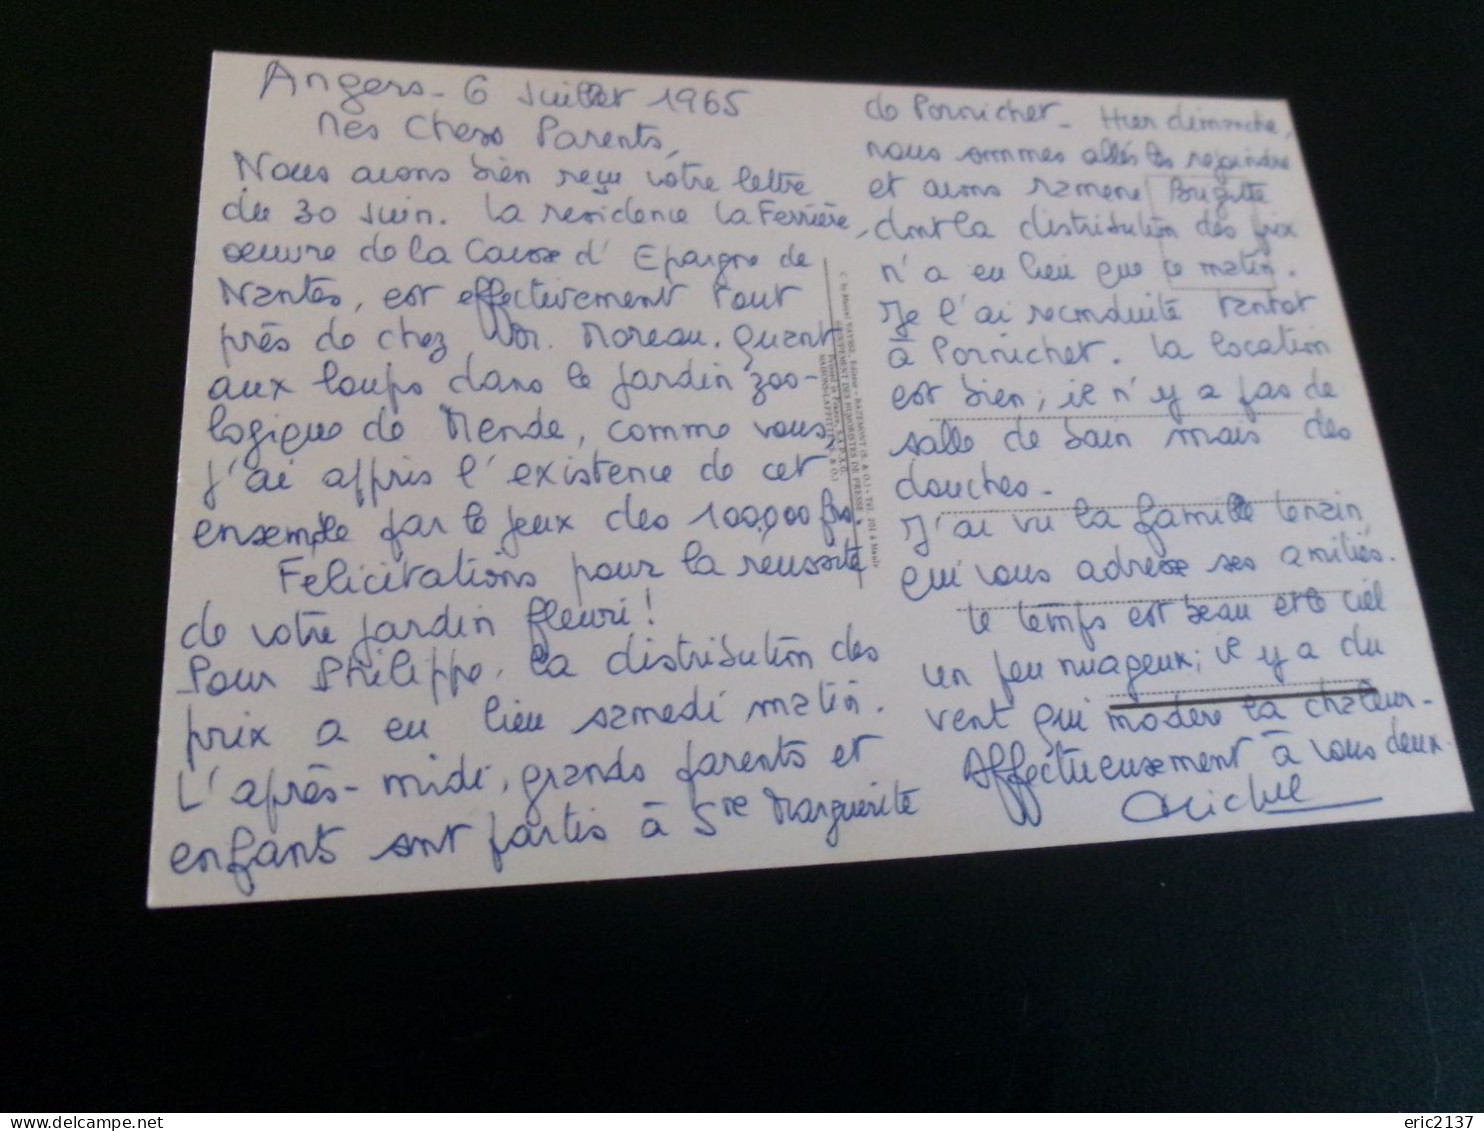 Angers - 6 Juillet 1965
Mes Chers Parents,
Nous avons bien reçu votre lettre
du 30 Juin. La residence La Ferrière,
oeuvre de la Caisse d'Epargne de
Nantes, est effectivement tout
près de chez Mr. Moreau. Quant
aux loups dans le jardin zoo-
logique de Mende, comme vous,
j'ai appris l'existence de cet
ensemble par le jeux des 100,000 frs
Felicitations pour la reussite
de votre jardin fleuri!
Pour Philippe, la distribution des
prix a eu lieu samedi matin.
L'après-midi, grands parents et
enfants sont partis à Ste Marguerite
de Pornichet - Hier dimanche,
nous sommes allés les rejoindre
et avons ramené Brigitte
dont la distribution des prix
n'a eu lieu que ce matin.
Je l'ai reconduite tantot
à Pornichet. La location
est bien; il n'y a pas de
salle de bain mais des
douches -
J'ai vu la famille
qui vous adresse ses amitiés.
Le temps est beau et le ciel
un peu nuageux; il y a du
vent qui modère la chaleur -
Affectueusement à vous deux
Michel
GROUPEMENT DES HUMORISTES DE PRESSE
eric2137